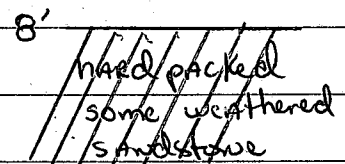 8'
hard packed
some weathered
sandstone